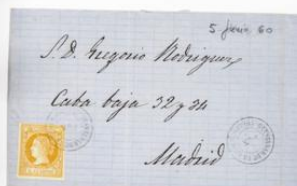 5 Junio 60
S. D. Gregorio Rodriguez
Caba baja 32 y 34
Madrid